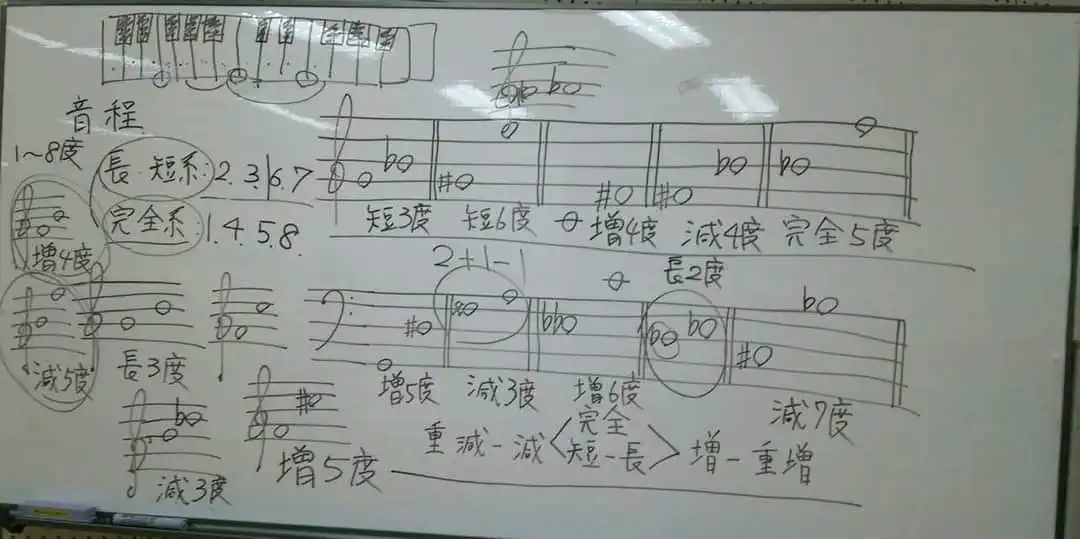 音程
1~8度
長・短系:2.3.6.7
完全系:1.4.5.8.
増4度
短3度 短6度 増4度 減4度 完全5度
2+1-1
長2度
減5度
長3度
増5度 減3度 増6度
減7度
減3度
増5度
重減-減<完全 短-長>増-重増